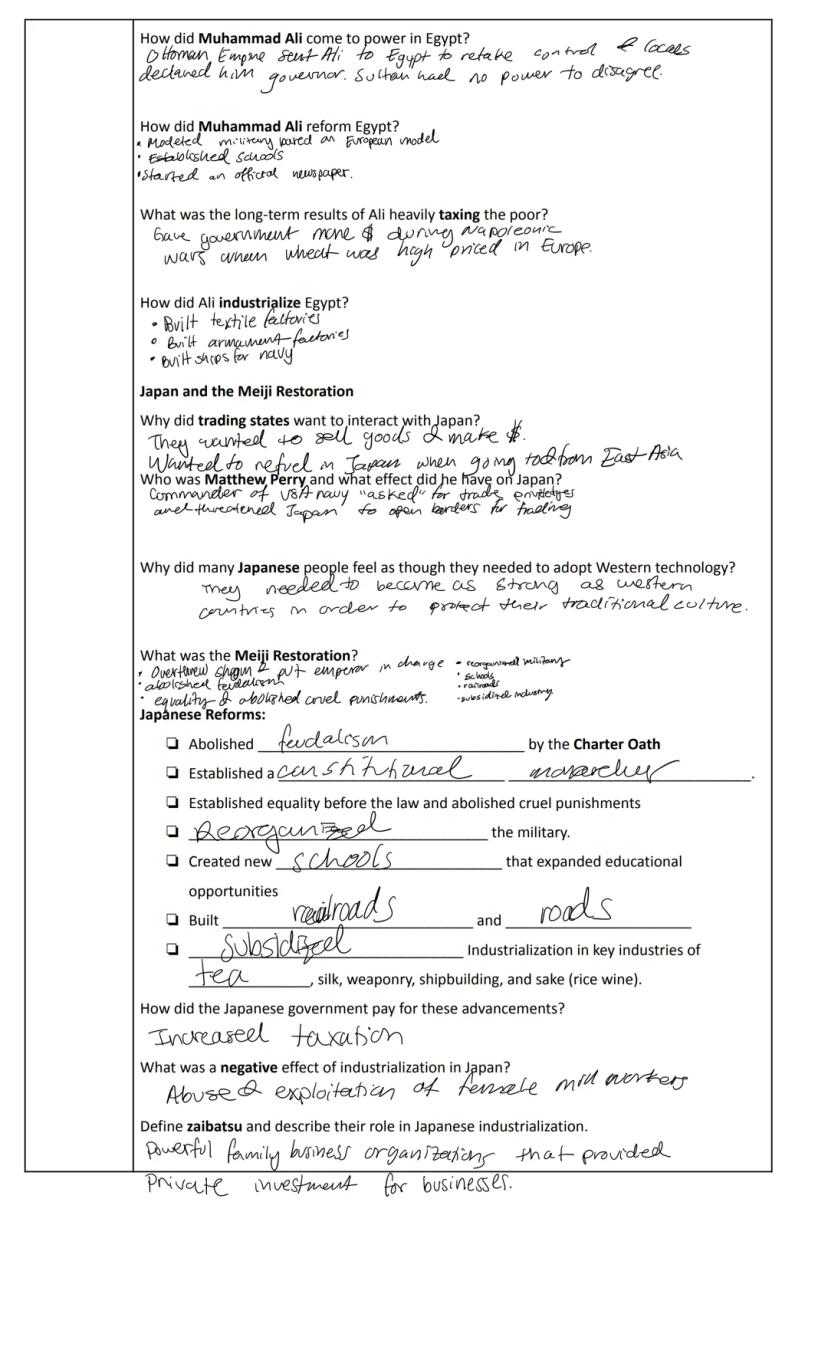 How did Muhammad Ali come to power in Egypt?
Ottoman Empire sent Ali to Egypt to retake control & locals
declared him governor. Sultan had no power to disagree.
How did Muhammad Ali reform Egypt?
• Modeled military based on European model
• Established schools
• Started an official newspaper.
What was the long-term results of Ali heavily taxing the poor?
Gave government more $ during Napoleonic
wars when wheat was high priced in Europe.
How did Ali industrialize Egypt?
• Built textile factories
• Built armament factories
• Built ships for navy
Japan and the Meiji Restoration
Why did trading states want to interact with Japan?
They wanted to sell goods & make $.
Wanted to refuel in Japan when going to & from East Asia
Who was Matthew Perry and what effect did he have on Japan?
Commander of USA navy "asked" for trade priviledges
and threatened Japan to open borders for trading
Why did many Japanese people feel as though they needed to adopt Western technology?
They needed to become as strong as western
countries in order to protect their traditional culture.
What was the Meiji Restoration?
• Overthrew shogun & put emperor in charge
• abolished feudalism
• equality & abolished cruel punishments.
• reorganized military
• schools
• railroads
• subsidized industry
Japanese Reforms:
❑ Abolished feudalism by the Charter Oath
❑ Established a constitutional monarchy.
❑ Established equality before the law and abolished cruel punishments
❑ Reorganized the military.
❑ Created new schools that expanded educational
opportunities
❑ Built railroads and roads
❑ Subsidized Industrialization in key industries of
tea, silk, weaponry, shipbuilding, and sake (rice wine).
How did the Japanese government pay for these advancements?
Increased taxation
What was a negative effect of industrialization in Japan?
Abuse & exploitation of female mill workers
Define zaibatsu and describe their role in Japanese industrialization.
Powerful family business organizations that provided
Private investment for businesses.